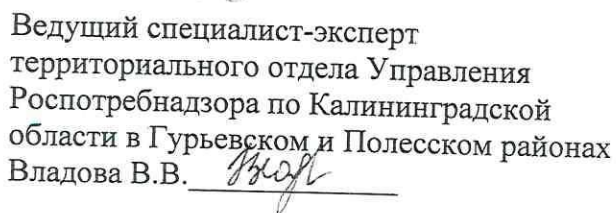 Ведущий специалист-эксперт
территориального отдела Управления
Роспотребнадзора по Калининградской
области в Гурьевском и Полесском районах
Владова В.В.